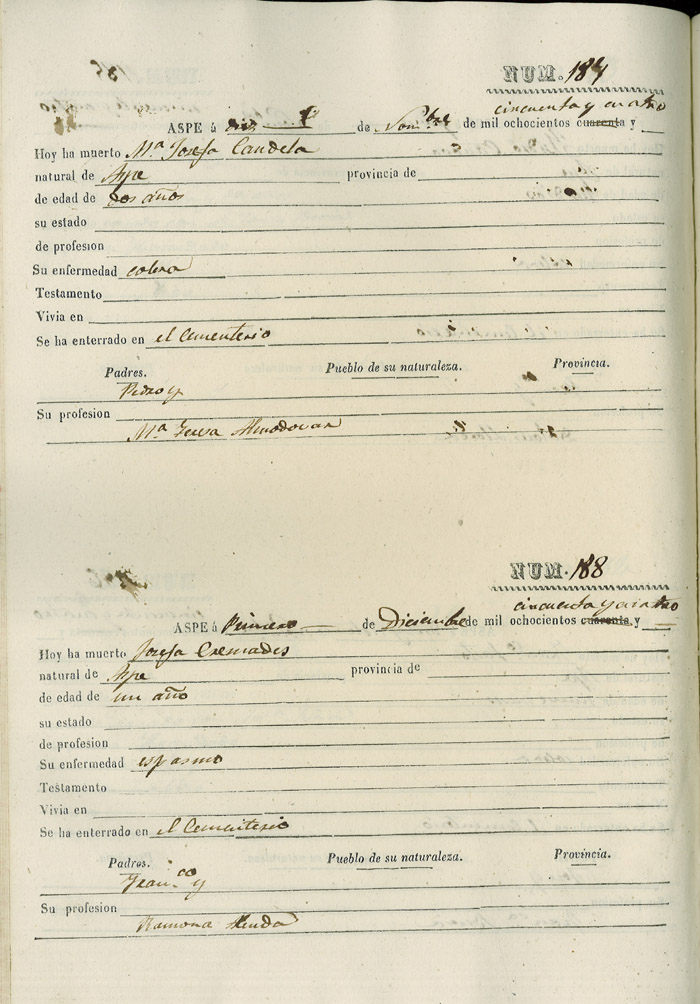 NUM. 187
cincuenta y cuatro
ASPE á de Nombre de mil ochocientos cuarenta y
Hoy ha muerto Ma. Josefa Candela
natural de Aspe provincia de
de edad de dos años
su estado
de profesion
Su enfermedad colera
Testamento
Vivia en
Se ha enterrado en el Cementerio
Padres. Pueblo de su naturaleza. Provincia.
Pedro y
Su profesion
Ma. Teresa Almodovar
NUM. 188
cincuenta y cuatro
ASPE á Primero de Diciembre de mil ochocientos cuarenta y
Hoy ha muerto Josefa Cremades
natural de Aspe provincia de
de edad de un año
su estado
de profesion
Su enfermedad espasmo
Testamento
Vivia en
Se ha enterrado en el Cementerio
Padres. Pueblo de su naturaleza. Provincia.
Franco y
Su profesion
Ramona